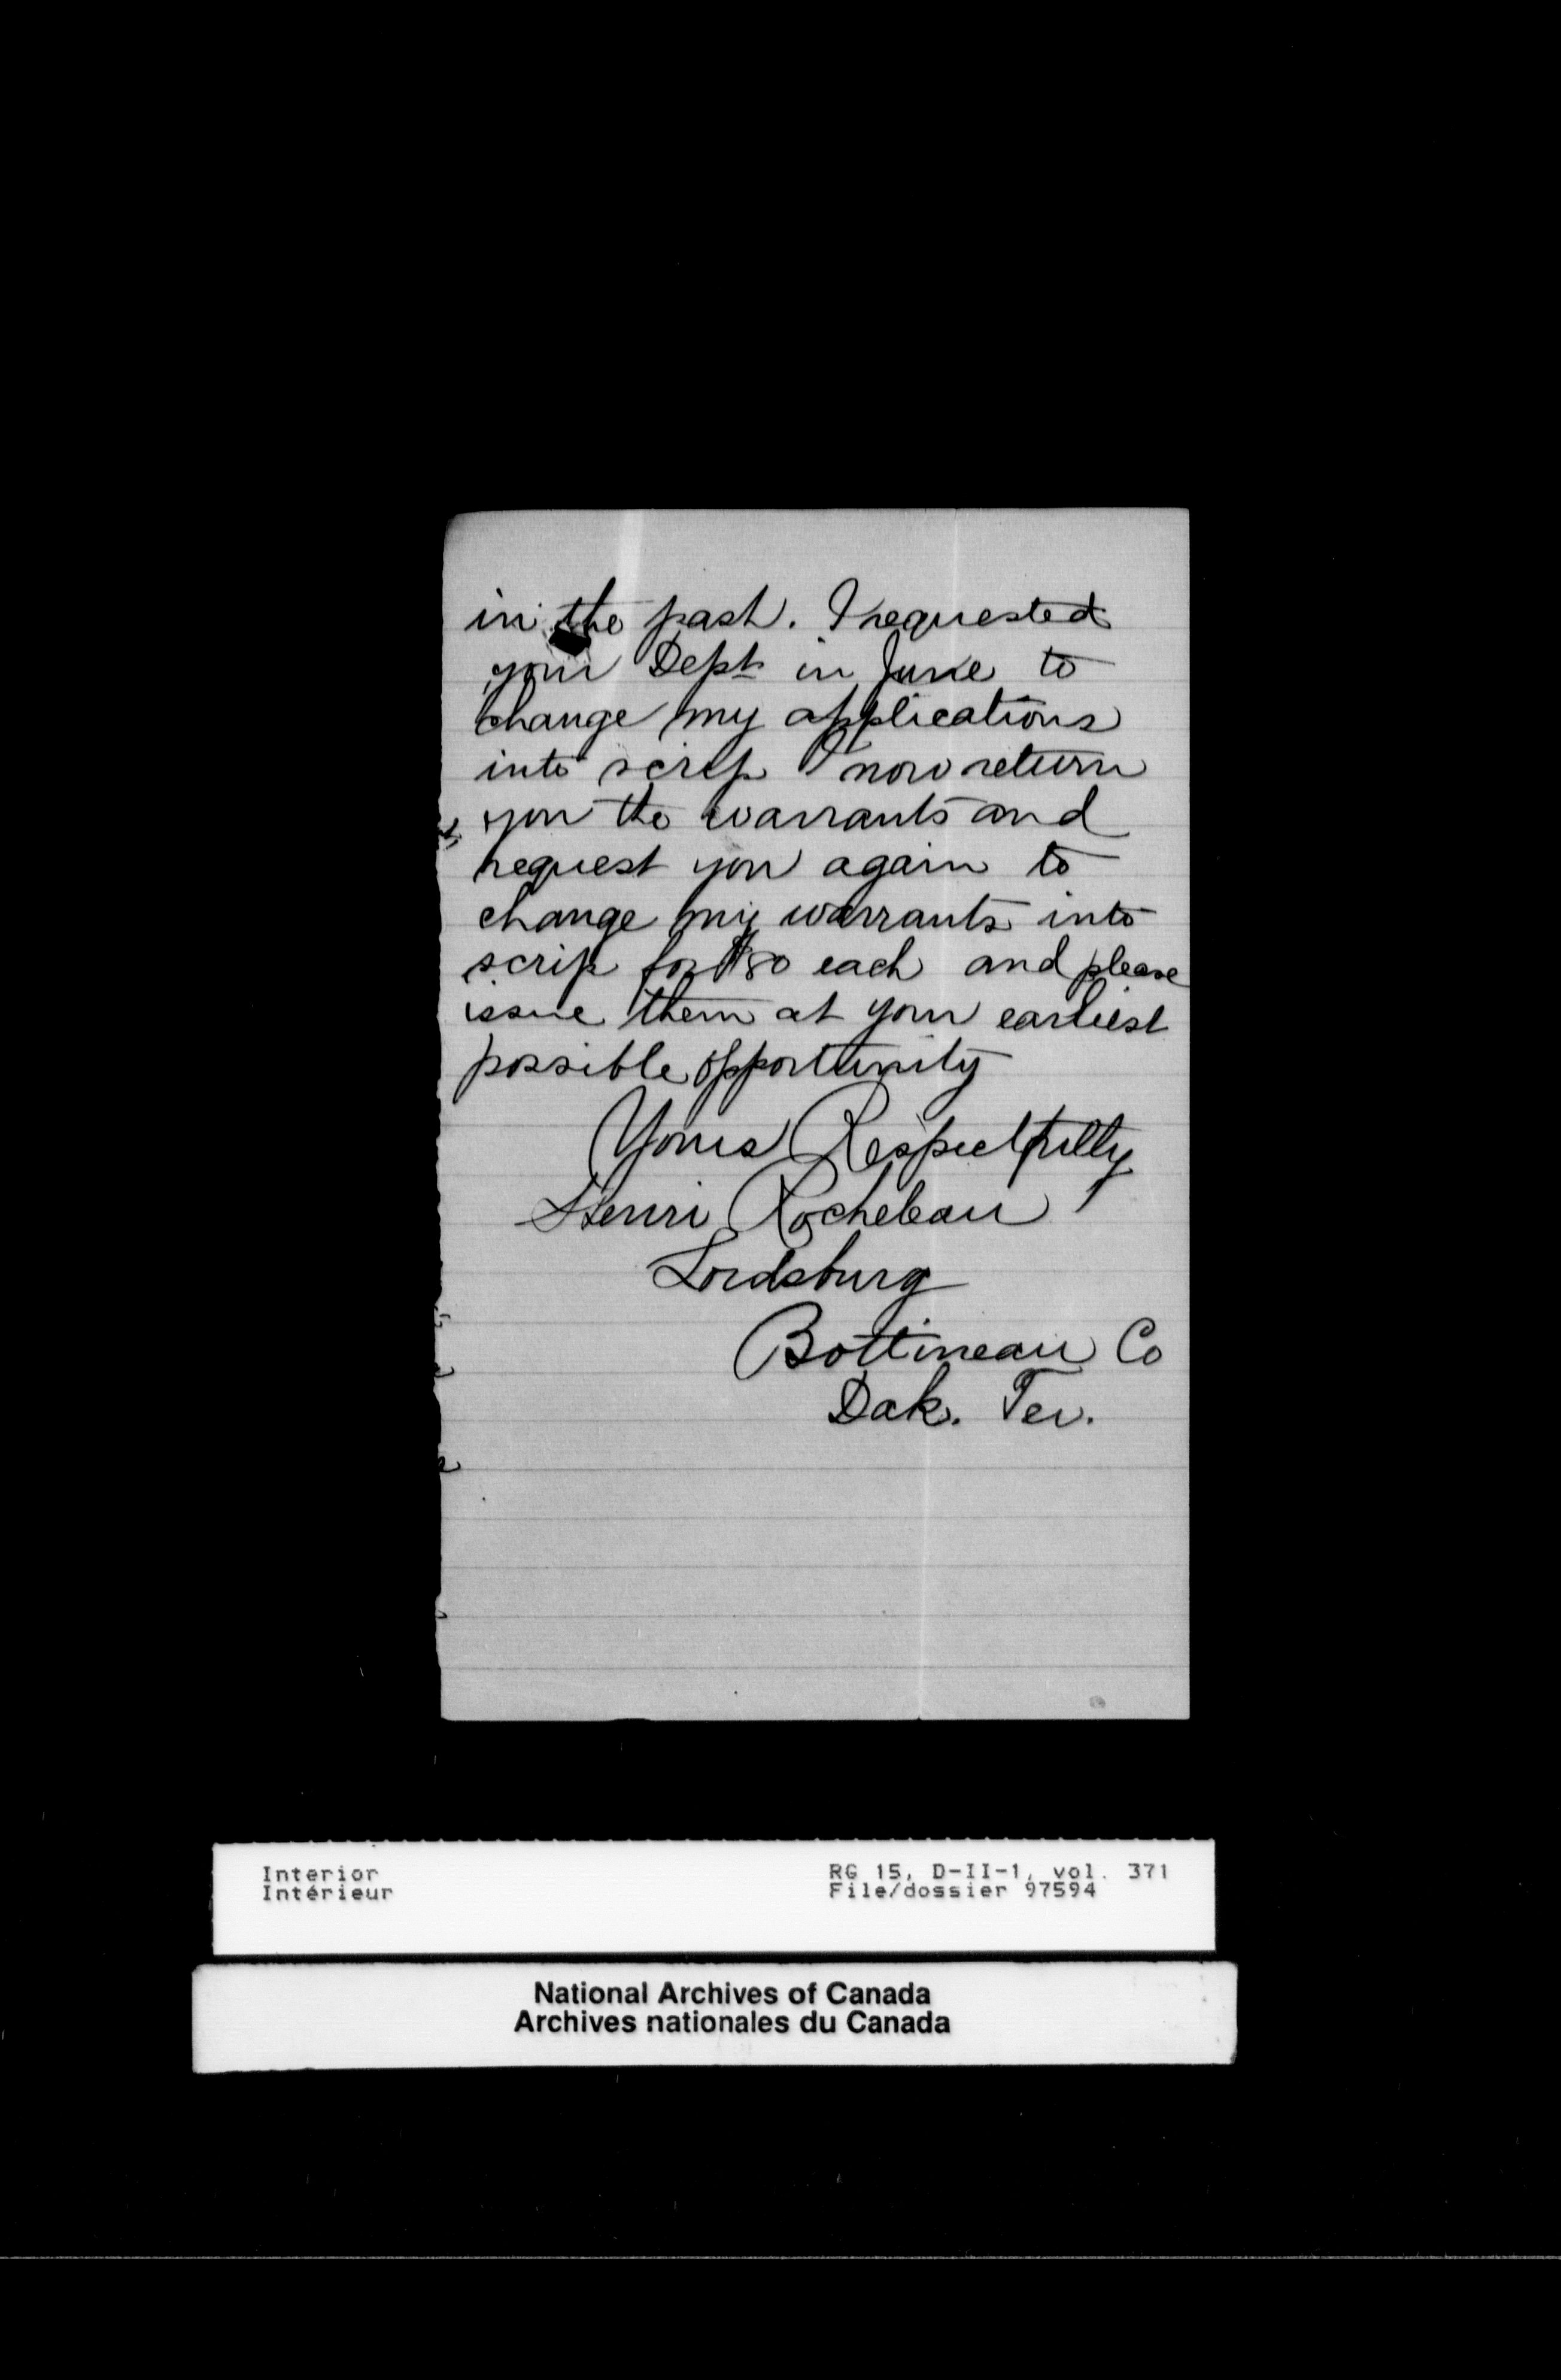 in the past. I requested
your Dept in June to
change my applications
into scrip I now return
you the warrants and
request you again to
change my warrants into
scrip for $80 each and please
issue them at your earliest
possible opportunity
Yours Respectfully
Henri Rocheleau
Lordsburg
Bottineau Co
Dak. Ter.
Interior
Intérieur
RG 15, D-II-1, vol. 371
File/dossier 97594
National Archives of Canada
Archives nationales du Canada